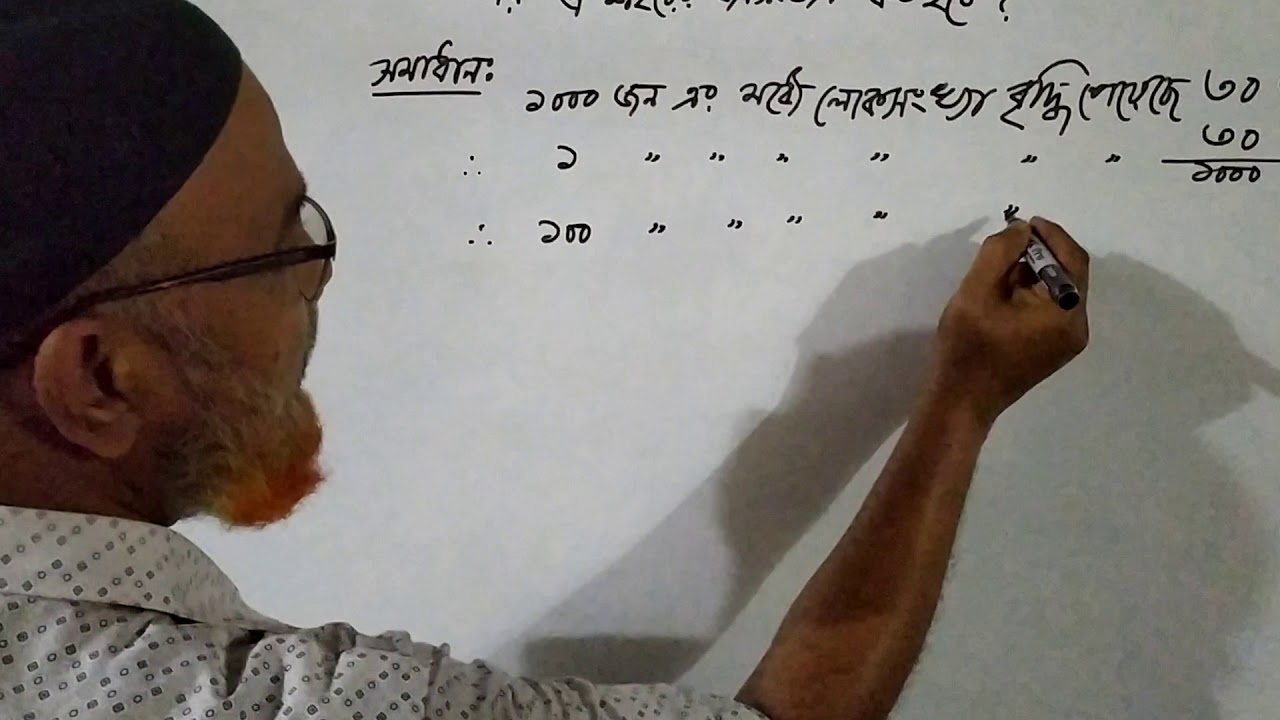 সমাধানঃ
১০০০ জন এর মধ্যে লোকসংখ্যা বৃদ্ধি পেয়েছে ৩০
∴ ১ " " " " " " ৩০/১০০০
∴ ১০০ " " " " "